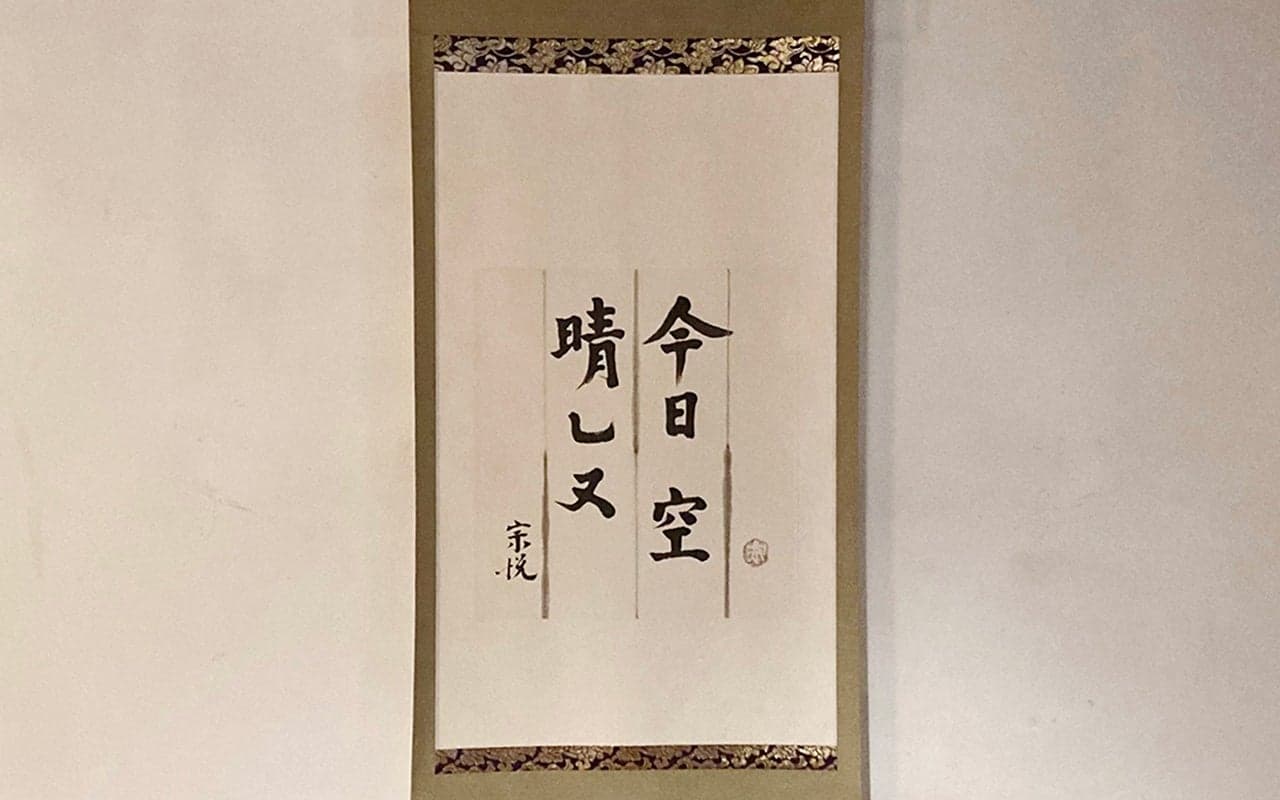 今日 空
晴レ又
宗悦